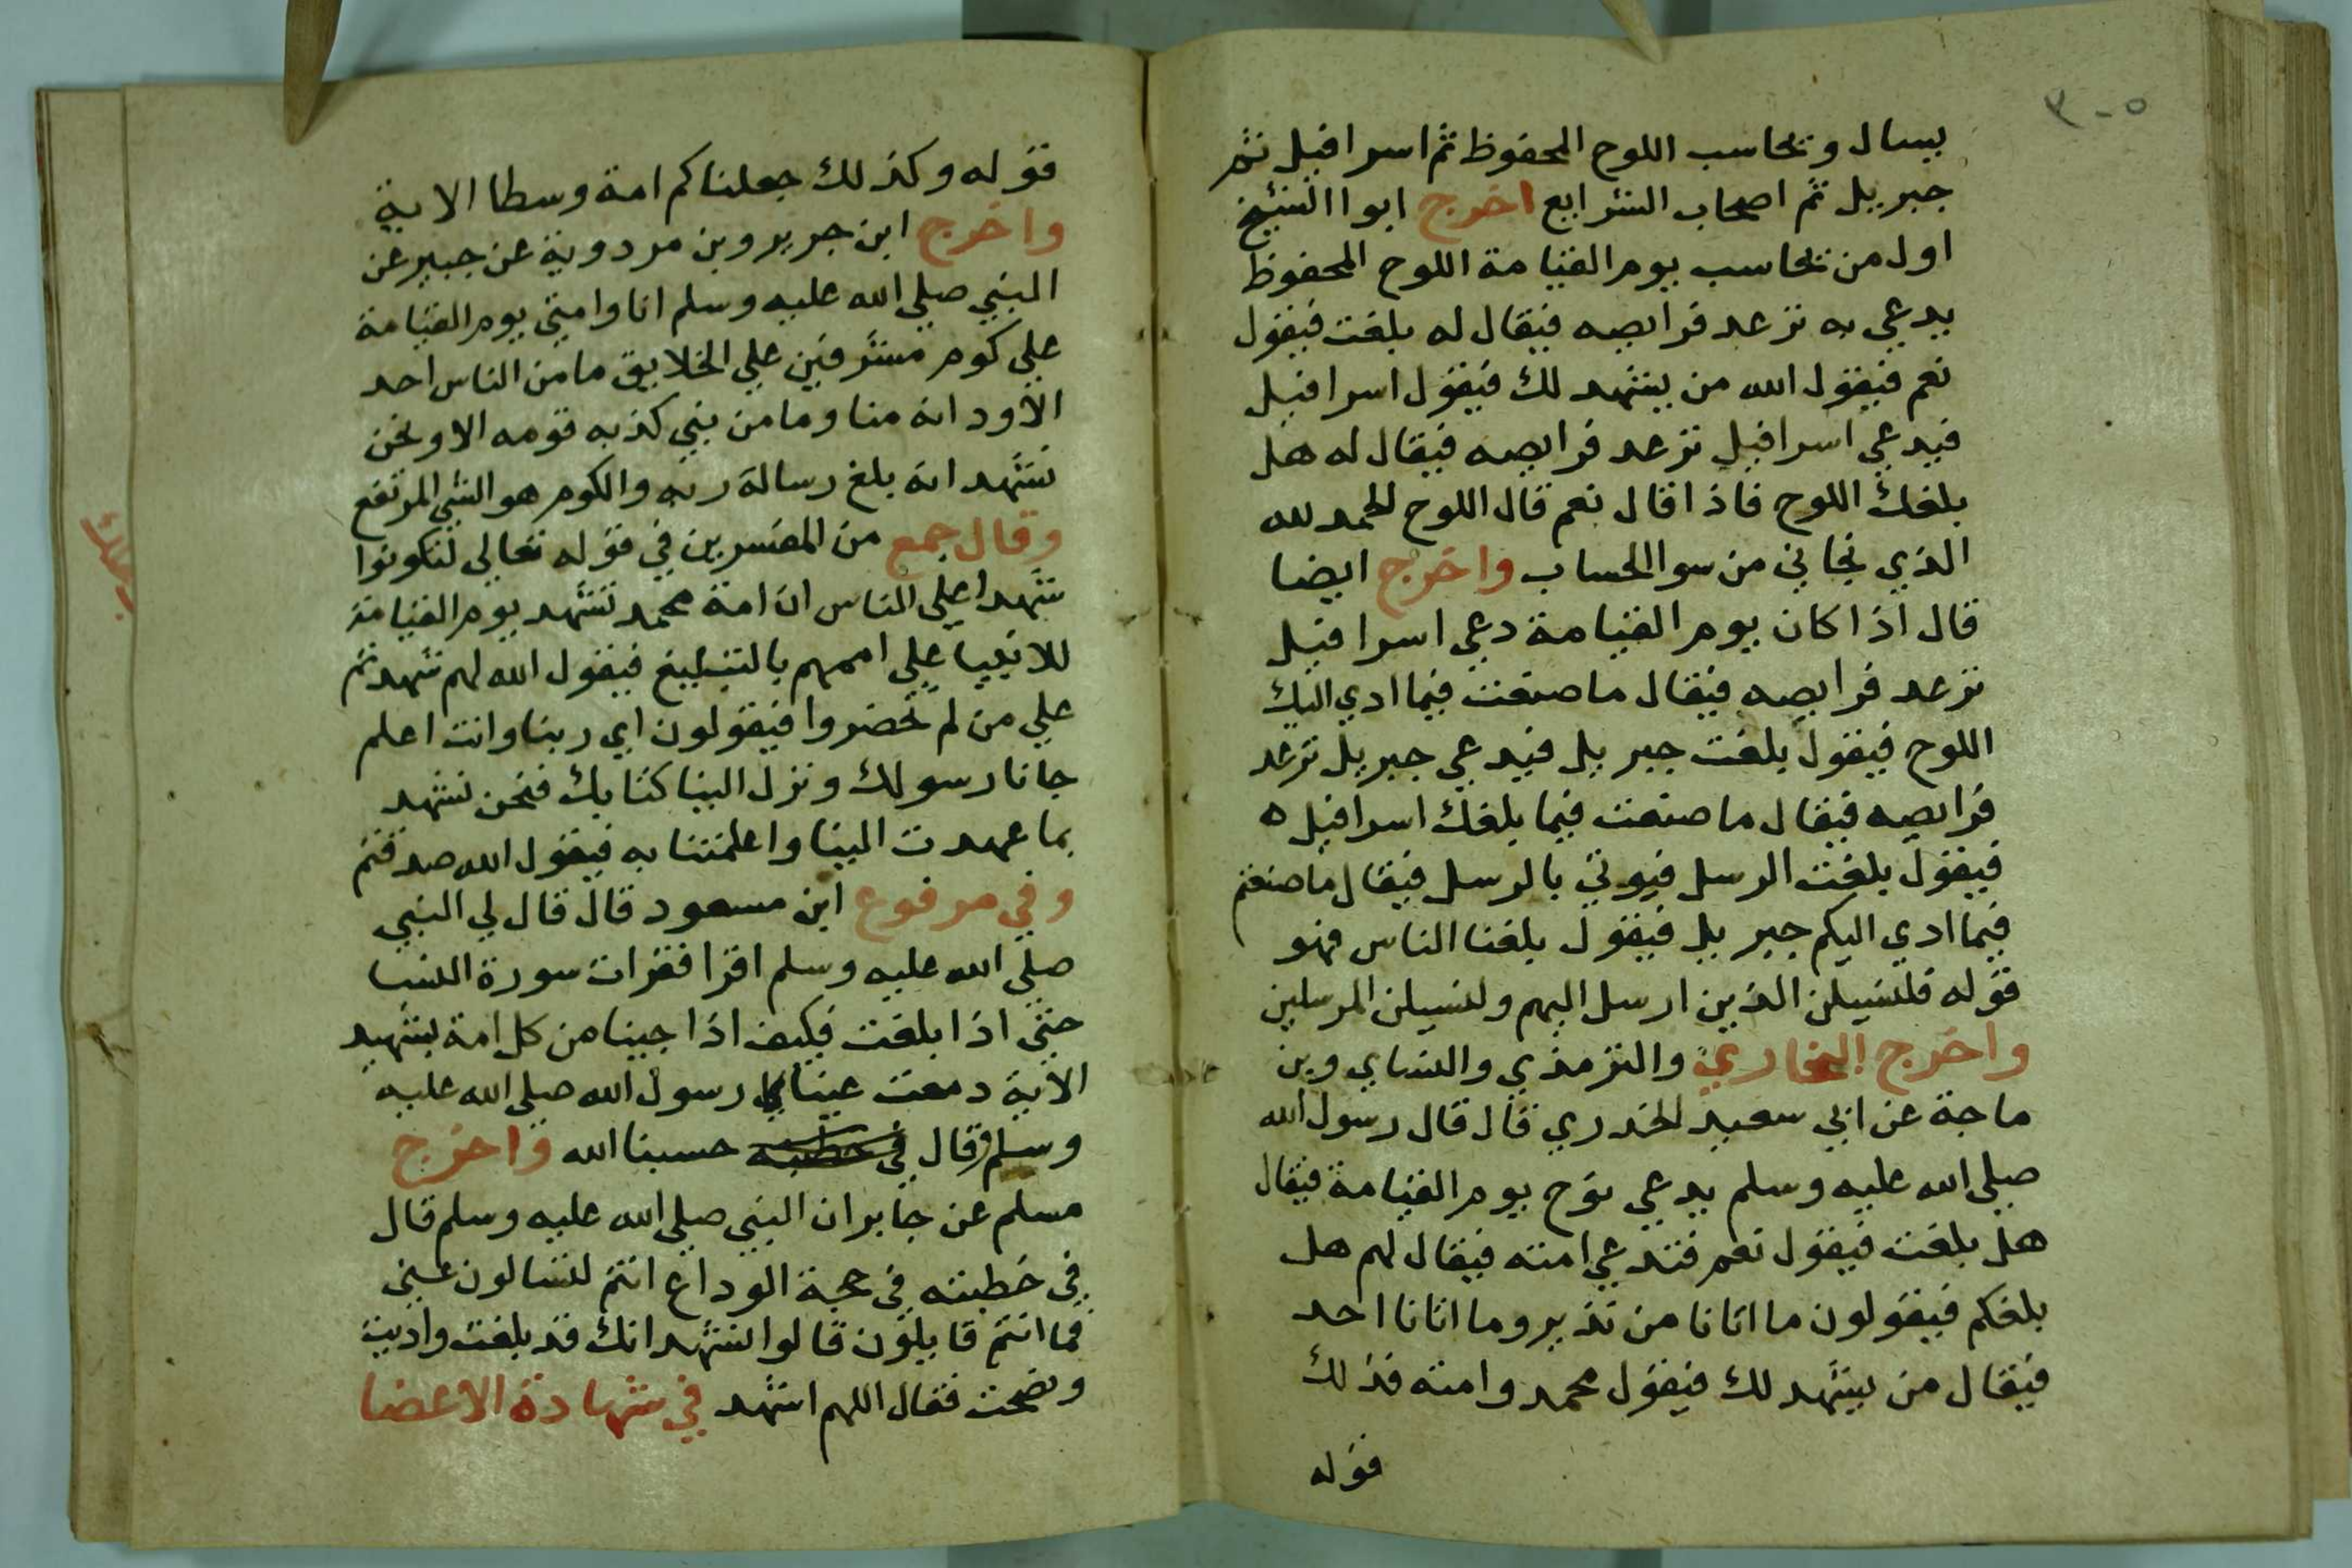 ٣٠٥
يسال ويحاسب اللوح المحفوظ ثم اسرافيل ثم
جبريل ثم اصحاب الشرايع اخرج ابوا الشيخ
اول من يحاسب يوم القيامة اللوح المحفوظ
يدعي به ترعد فرايصه فيقال له بلغت فيقول
نعم فيقول الله من يشهد لك فيقول اسرافيل
فيدعي اسرافيل ترعد فرايصه فيقال له هل
بلغك اللوح فاذا قال نعم قال اللوح الحمد لله
الذي نجاني من سوالحساب واخرج ايضا
قال اذا كان يوم القيامة دعي اسرافيل
ترعد فرايصه فيقال ما صنعت فيما ادي اليك
اللوح فيقول بلغت جبريل فيدعي جبريل ترعد
فرايصه فيقال ما صنعت فيما بلغك اسرافيل ه
فيقول بلغت الرسل فيوتي بالرسل فيقال ما صنعتم
فيما ادي اليكم جبريل فيقول بلغنا الناس فهو
قوله فلنسيلن الذين ارسل اليهم ولنسيلن المرسلين
واخرج البخاري والترمذي والنساي وبن
ماجة عن ابي سعيد الخدري قال قال رسول الله
صلي الله عليه وسلم يدعي نوح يوم القيامة فيقال
هل بلغت فيقول نعم فتدعي امته فيقال لهم هل
بلغكم فيقولون ما اتانا من نذير وما اتانا احد
فيقال من يشهد لك فيقول محمد وامته فذلك
قوله
قوله وكذلك جعلناكم امة وسطا الاية
واخرج ابن جرير وبن مردوية عن جبير عن
النبي صلي الله عليه وسلم انا وامتي يوم القيامة
علي كوم مشرفين علي الخلايق ما من الناس احد
الاود انه منا وما من نبي كذبه قومه الا ونحن
نشهد انه بلغ رسالة ربه والكوم هو الشي المرتفع
وقال جمع من المفسرين في قوله تعالي لتكونوا
شهدا علي الناس ان امة محمد تشهد يوم القيامة
للانبيا علي اممهم بالتبليغ فيقول الله لهم شهدتم
علي من لم تحضروا فيقولون اي ربنا وانت اعلم
جانا رسولك ونزل الينا كتابك فنحن نشهد
بما عهدت الينا واعلمتنا به فيقول الله صدقتم
وفي مرفوع ابن مسعود قال قال لي النبي
صلي الله عليه وسلم اقرا فقرات سورة النسا
حتي اذا بلغت فكيف اذا جينا من كل امة بشهيد
الاية دمعت عينا رسول الله صلي الله عليه
وسلم وقال في خطبته حسبنا الله واخرج
مسلم عن جابر ان النبي صلي الله عليه وسلم قال
في خطبته في حجة الوداع انتم لتسالون عني
فما انتم قايلون قالوا نشهد انك قد بلغت واديت
ونصحت فقال اللهم اشهد في شهادة الاعضا